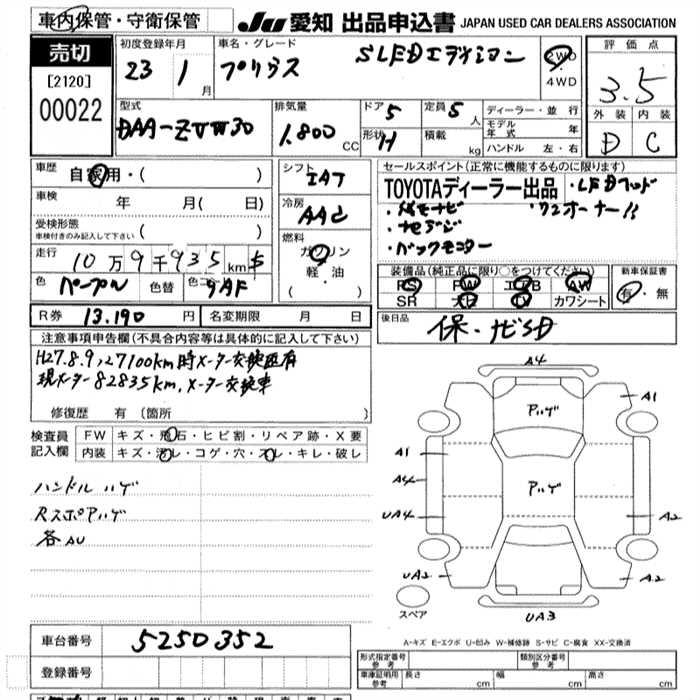 車内保管・守衛保管
JU 愛知 出品申込書 JAPAN USED CAR DEALERS ASSOCIATION
売切
[2120]
00022
初度登録年月
23 1 月
車名・グレード
プリウス SLEDエディション
2WD
・
4WD
評価点
3.5
外装 内装
D C
型式
DAA-ZVW30
排気量
1,800 CC
ドア 5
形状 H
定員 5 人
積載 kg
ディーラー・並行
モデル年式 年
ハンドル 左・右
車歴 自家用・( )
車検 年 月( 日)
受検形態
車検付きのみ記入して下さい ( )
走行 10万9千935km
色 パープル 色替 色コード 9AF
シフト
IAT
冷房
AAC
燃料
ガソリン
軽・油
( )
セールスポイント(正常に機能するものに限ります)
TOYOTAディーラー出品 ・LED
・メモナビ ・ワンオーナー!!
・地デジ
・バックモニター
装備品(純正品に限り○をつけてください)
PS PW エアB AW
SR ナビ TV カワシート
新車保証書
有・無
R券 13,190 円 名変期限 月 日
後日品
保・ナビSD
注意事項申告欄(不具合内容等は具体的に記入して下さい)
H27.8.9、27100km時メーター交換歴有
現メーター82835km、メーター交換車
修復歴 有 (箇所 )
検査員記入欄
FW キズ・飛石・ヒビ割・リペア跡・X要
内装 キズ・汚レ・コゲ・穴・スレ・キレ・破レ
ハンドル ハゲ
RスポアハゲA
各AU
A4
アハゲ
A1
A1
A4
アハゲ
UA4
A2
UA2
A2
スペア
UA3
A-キズ E-エクボ U-凹み W-補修跡 S-サビ C-腐食 XX-交換済
車台番号 5250352
登録番号
形式指定番号 参考
類別区分番号 参考
車庫証明用 参考 長さ cm 幅 cm 高さ cm